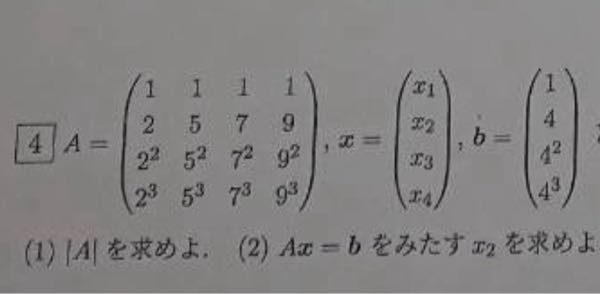 4 A = (1 1 1 1
2 5 7 9
2² 5² 7² 9²
2³ 5³ 7³ 9³), x = (x₁
x₂
x₃
x₄), b = (1
4
4²
4³)
(1) |A| を求めよ. (2) Ax = b をみたす x₂ を求めよ